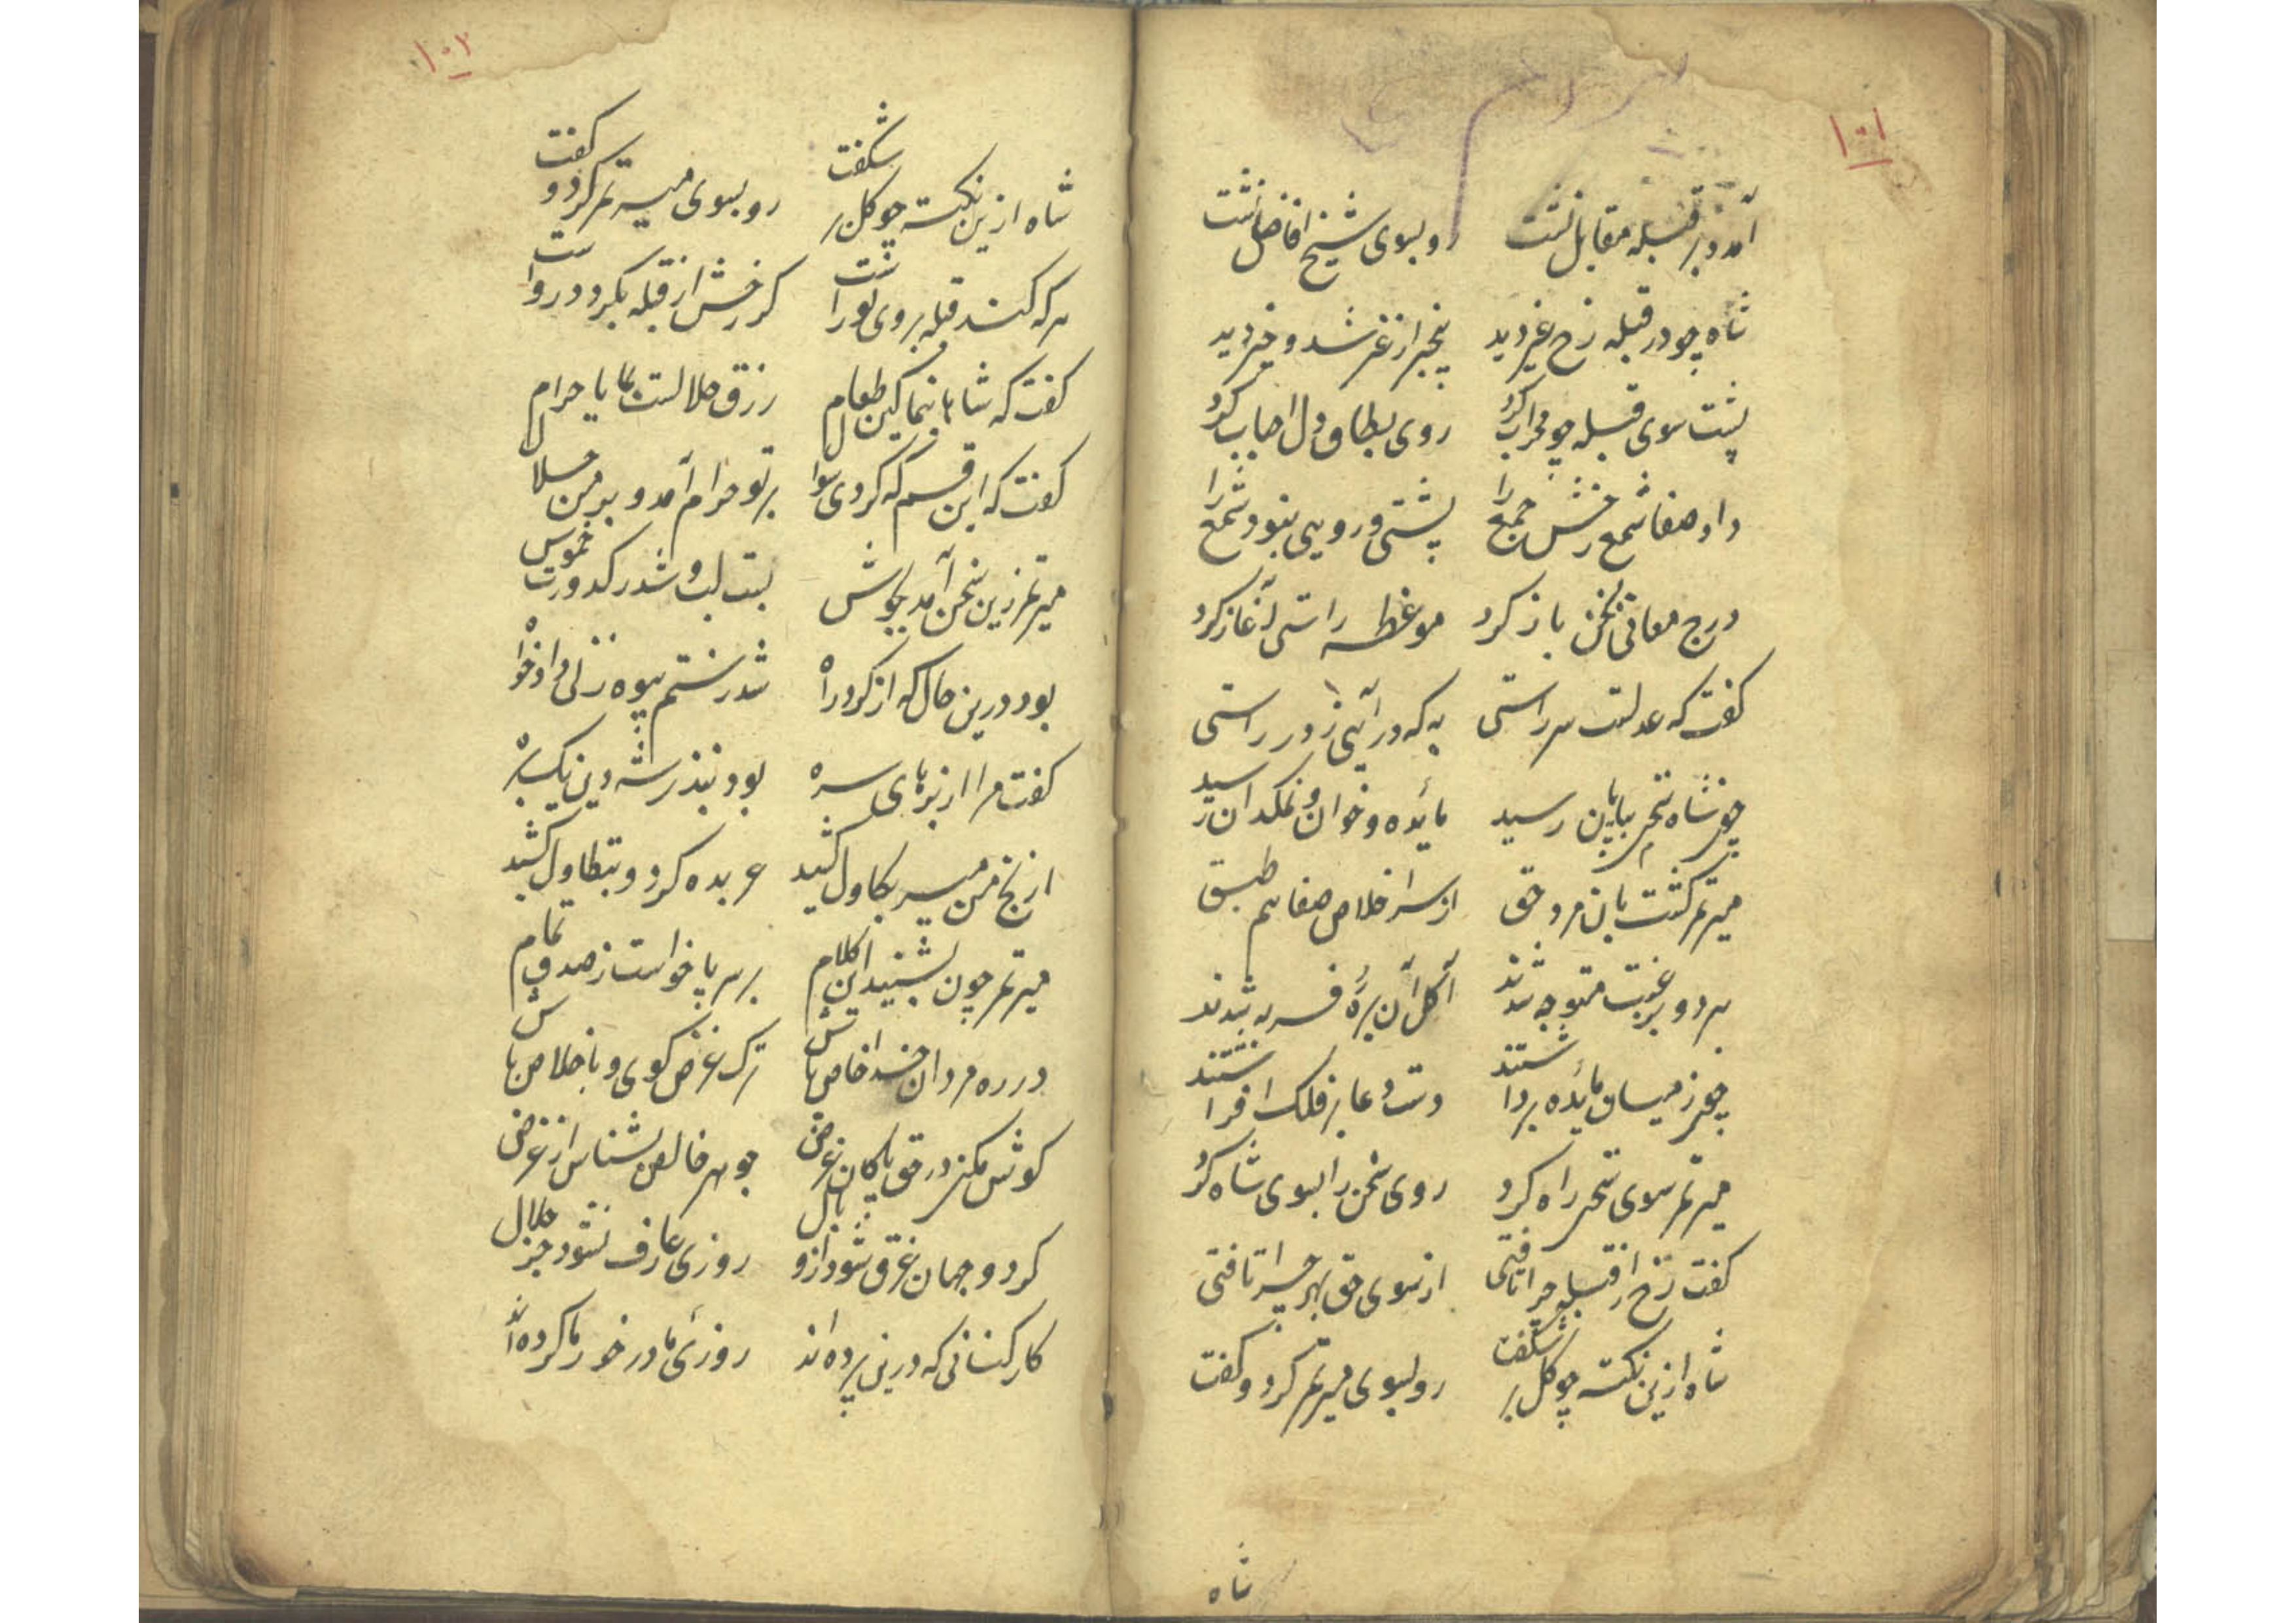 ۱۰۱
آمد و در قبله مقابل نشست روبسوی شیخ افاضل نشست
شاه چو در قبله رخ غیر دید بیخبر از غیر شد و خیر دید
پشت سوی قبله چو محراب کرد روی بطاق دل احباب کرد
داد صفا شمع رخش جمع را پشتی و رویی نبود شمع را
درج معانی بسخن باز کرد موعظه راستی آغاز کرد
گفت که عدلست سر راستی به که درآیی ز در راستی
چون سخن شاه بپایان رسید مایده و خوان و نمکدان رسید
میر تمر گشت بآن مرد حق از سر اخلاص صفا هم طبق
هر دو برغبت متوجه شدند آکل آن برهٔ فربه شدند
چون ز میان مائده برداشتند دست دعا بر فلک افراشتند
میر تمر سوی سخن راه کرد روی سخن را بسوی شاه کرد
گفت رخ از قبله چرا تافتی از سوی حق بهر چرا تافتی
شاه ازین نکته چو گل بر شگفت روبسوی میر تمر کرد و گفت
شاه
۱۰۲
شاه ازین نکته چو گل بر شگفت روبسوی میر تمر کرد و گفت
هر که کند قبله بروی تو راست گر رخش از قبله بگردد رواست
گفت که شاها بنما کین طعام رزق حلالست بما یا حرام
گفت که این قسم که کردی سوال بر تو حرام آمد و بر من حلال
میر تمر زین سخن آمد بجوش بست لب و شد ز کدورت خموش
بود درین حال که از گرد راه شد ز ستم بیوه زنی دادخواه
گفت مرا از بزهای سره بود بنذر شه دین یک بره
از بخ من میر بکاول کشید عربده کرد و بتطاول کشید
میر تمر چون بشنید این کلام بر سر پا خواست ز صدق تمام
در ره مردان خدا خاص باش ترک غرض گوی و باخلاص باش
گوش مکن در حق پاکان غرض جوهر خالص بشناس از غرض
گر دو جهان غرق شود از وبال روزی عارف نشود جز حلال
کارکنانی که درین پرده‌اند روزی ما در خور ما کرده‌اند